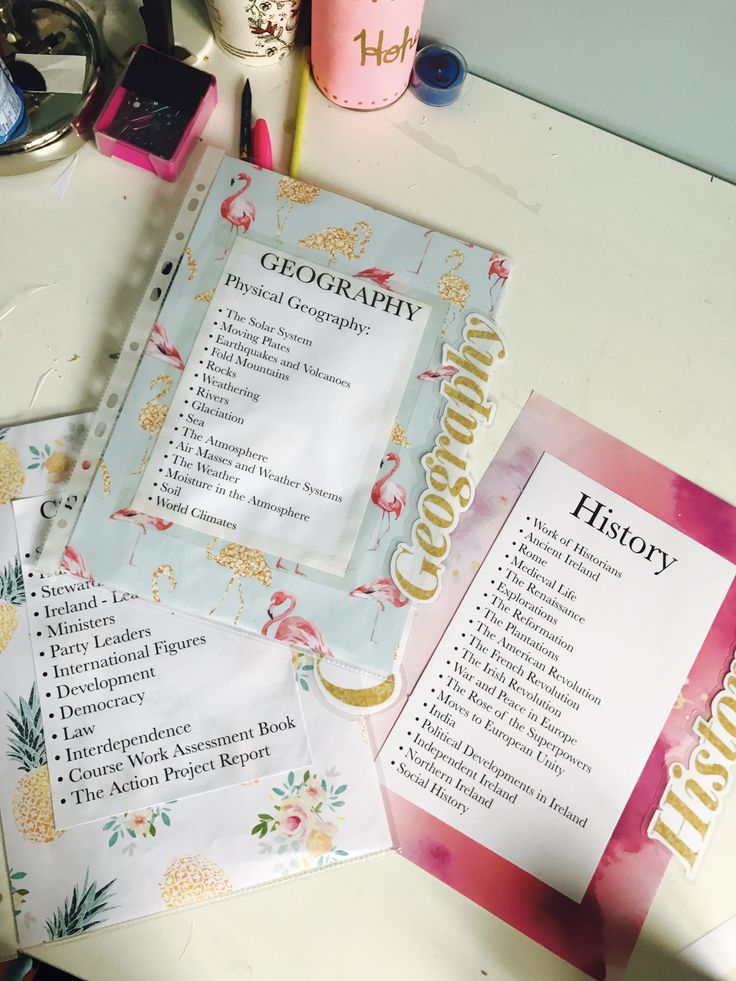 Hoh
GEOGRAPHY
Physical Geography:
• The Solar System
• Moving Plates
• Earthquakes and Volcanoes
• Fold Mountains
• Rocks
• Weathering
• Rivers
• Glaciation
• Sea
• The Atmosphere
• Air Masses and Weather Systems
• The Weather
• Moisture in the Atmosphere
• Soil
• World Climates
Geography
History
• Work of Historians
• Ancient Ireland
• Rome
• Medieval Life
• The Renaissance
• Explorations
• The Reformation
• The Plantations
• The American Revolution
• The French Revolution
• The Irish Revolution
• War and Peace in Europe
• The Rose of the Superpowers
• Moves to European Unity
• India
• Political Developments in Ireland
• Independent Ireland
• Northern Ireland
• Social History
History
C
• Ireland - Lea
• Ministers
• Party Leaders
• International Figures
• Development
• Democracy
• Law
• Interdependence
• Course Work Assessment Book
• The Action Project Report
C